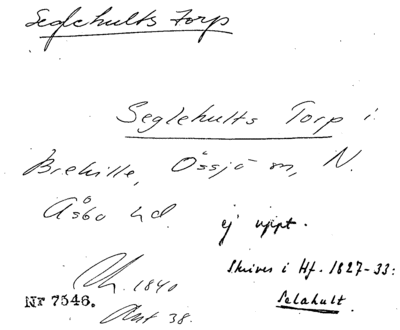 Seglehults Torp
Seglehults Torp i
Brehille, Össjö sn, N.
Åsbo hd.
ej uppt.
Skrives i Hf. 1827-33:
Selahult.
1840
Nr 7546.
38.